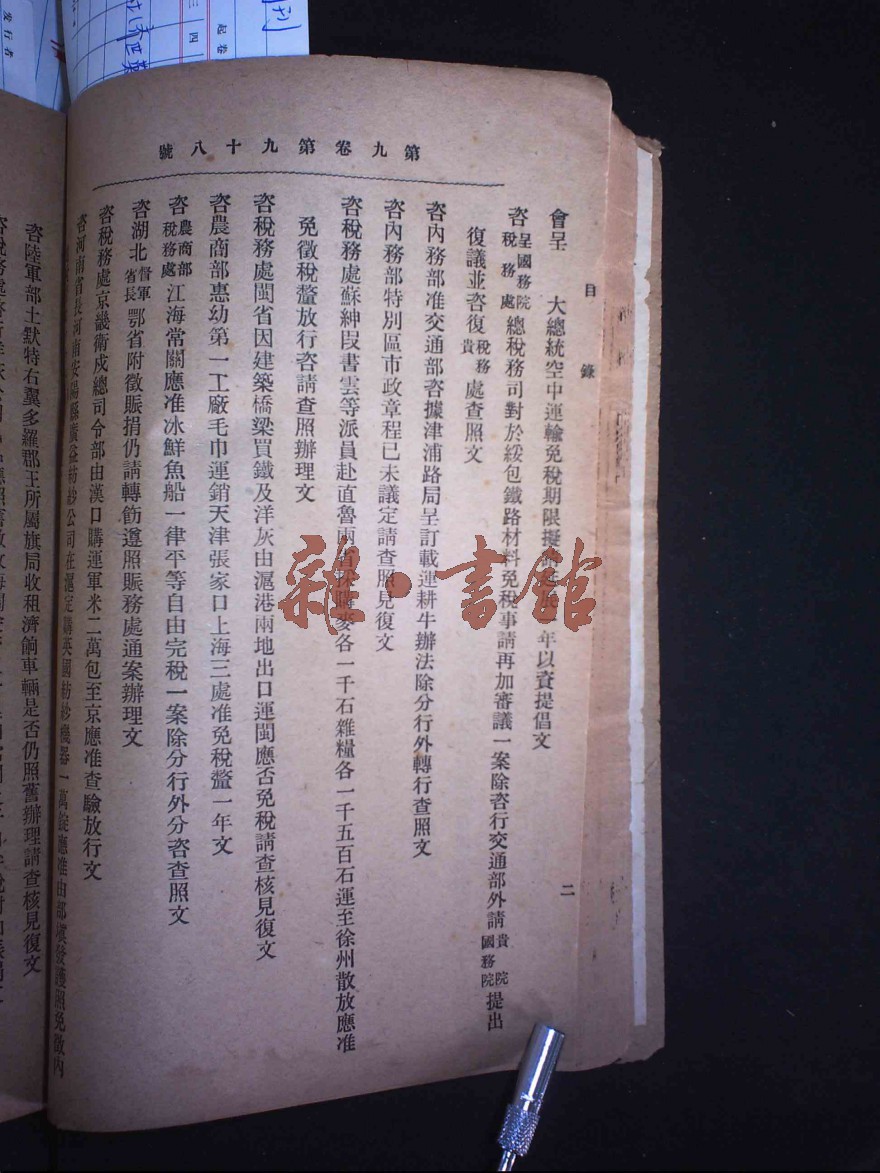 第九卷第九十八號
目錄
二
會呈 大總統空中運輸免稅期限擬請延長一年以資提倡文
咨呈國務院稅務處總稅務司對於綏包鐵路材料免稅事請再加審議一案除咨行交通部外請貴院國務院提出
復議並咨復稅務貴處查照文
咨內務部准交通部咨據津浦路局呈訂載運耕牛辦法除分行外轉行查照文
咨內務部特別區市政章程已未議定請查照見復文
咨稅務處蘇紳段書雲等派員赴直魯兩省採購麥各一千石雜糧各一千五百石運至徐州散放應准
免徵稅釐放行咨請查照辦理文
咨稅務處閩省因建築橋梁買鐵及洋灰由滬港兩地出口運閩應否免稅請查核見復文
咨農商部惠幼第一工廠毛巾運銷天津張家口上海三處准免稅釐一年文
咨農商部稅務處江海常關應准冰鮮魚船一律平等自由完稅一案除分行外分咨查照文
咨湖北督軍省長鄂省附徵賑捐仍請轉飭遵照賑務處通案辦理文
咨稅務處京畿衛戍總司令部由漢口購運軍米二萬包至京應准查驗放行文
咨河南省長河南安陽縣廣益紡紗公司在滬定購英國紡紗機器一萬錠應准由部填發護照免徵內
咨陸軍部土默特右翼多羅郡王所屬旗局收租濟餉車輛是否仍照舊辦理請查核見復文
雜·書館